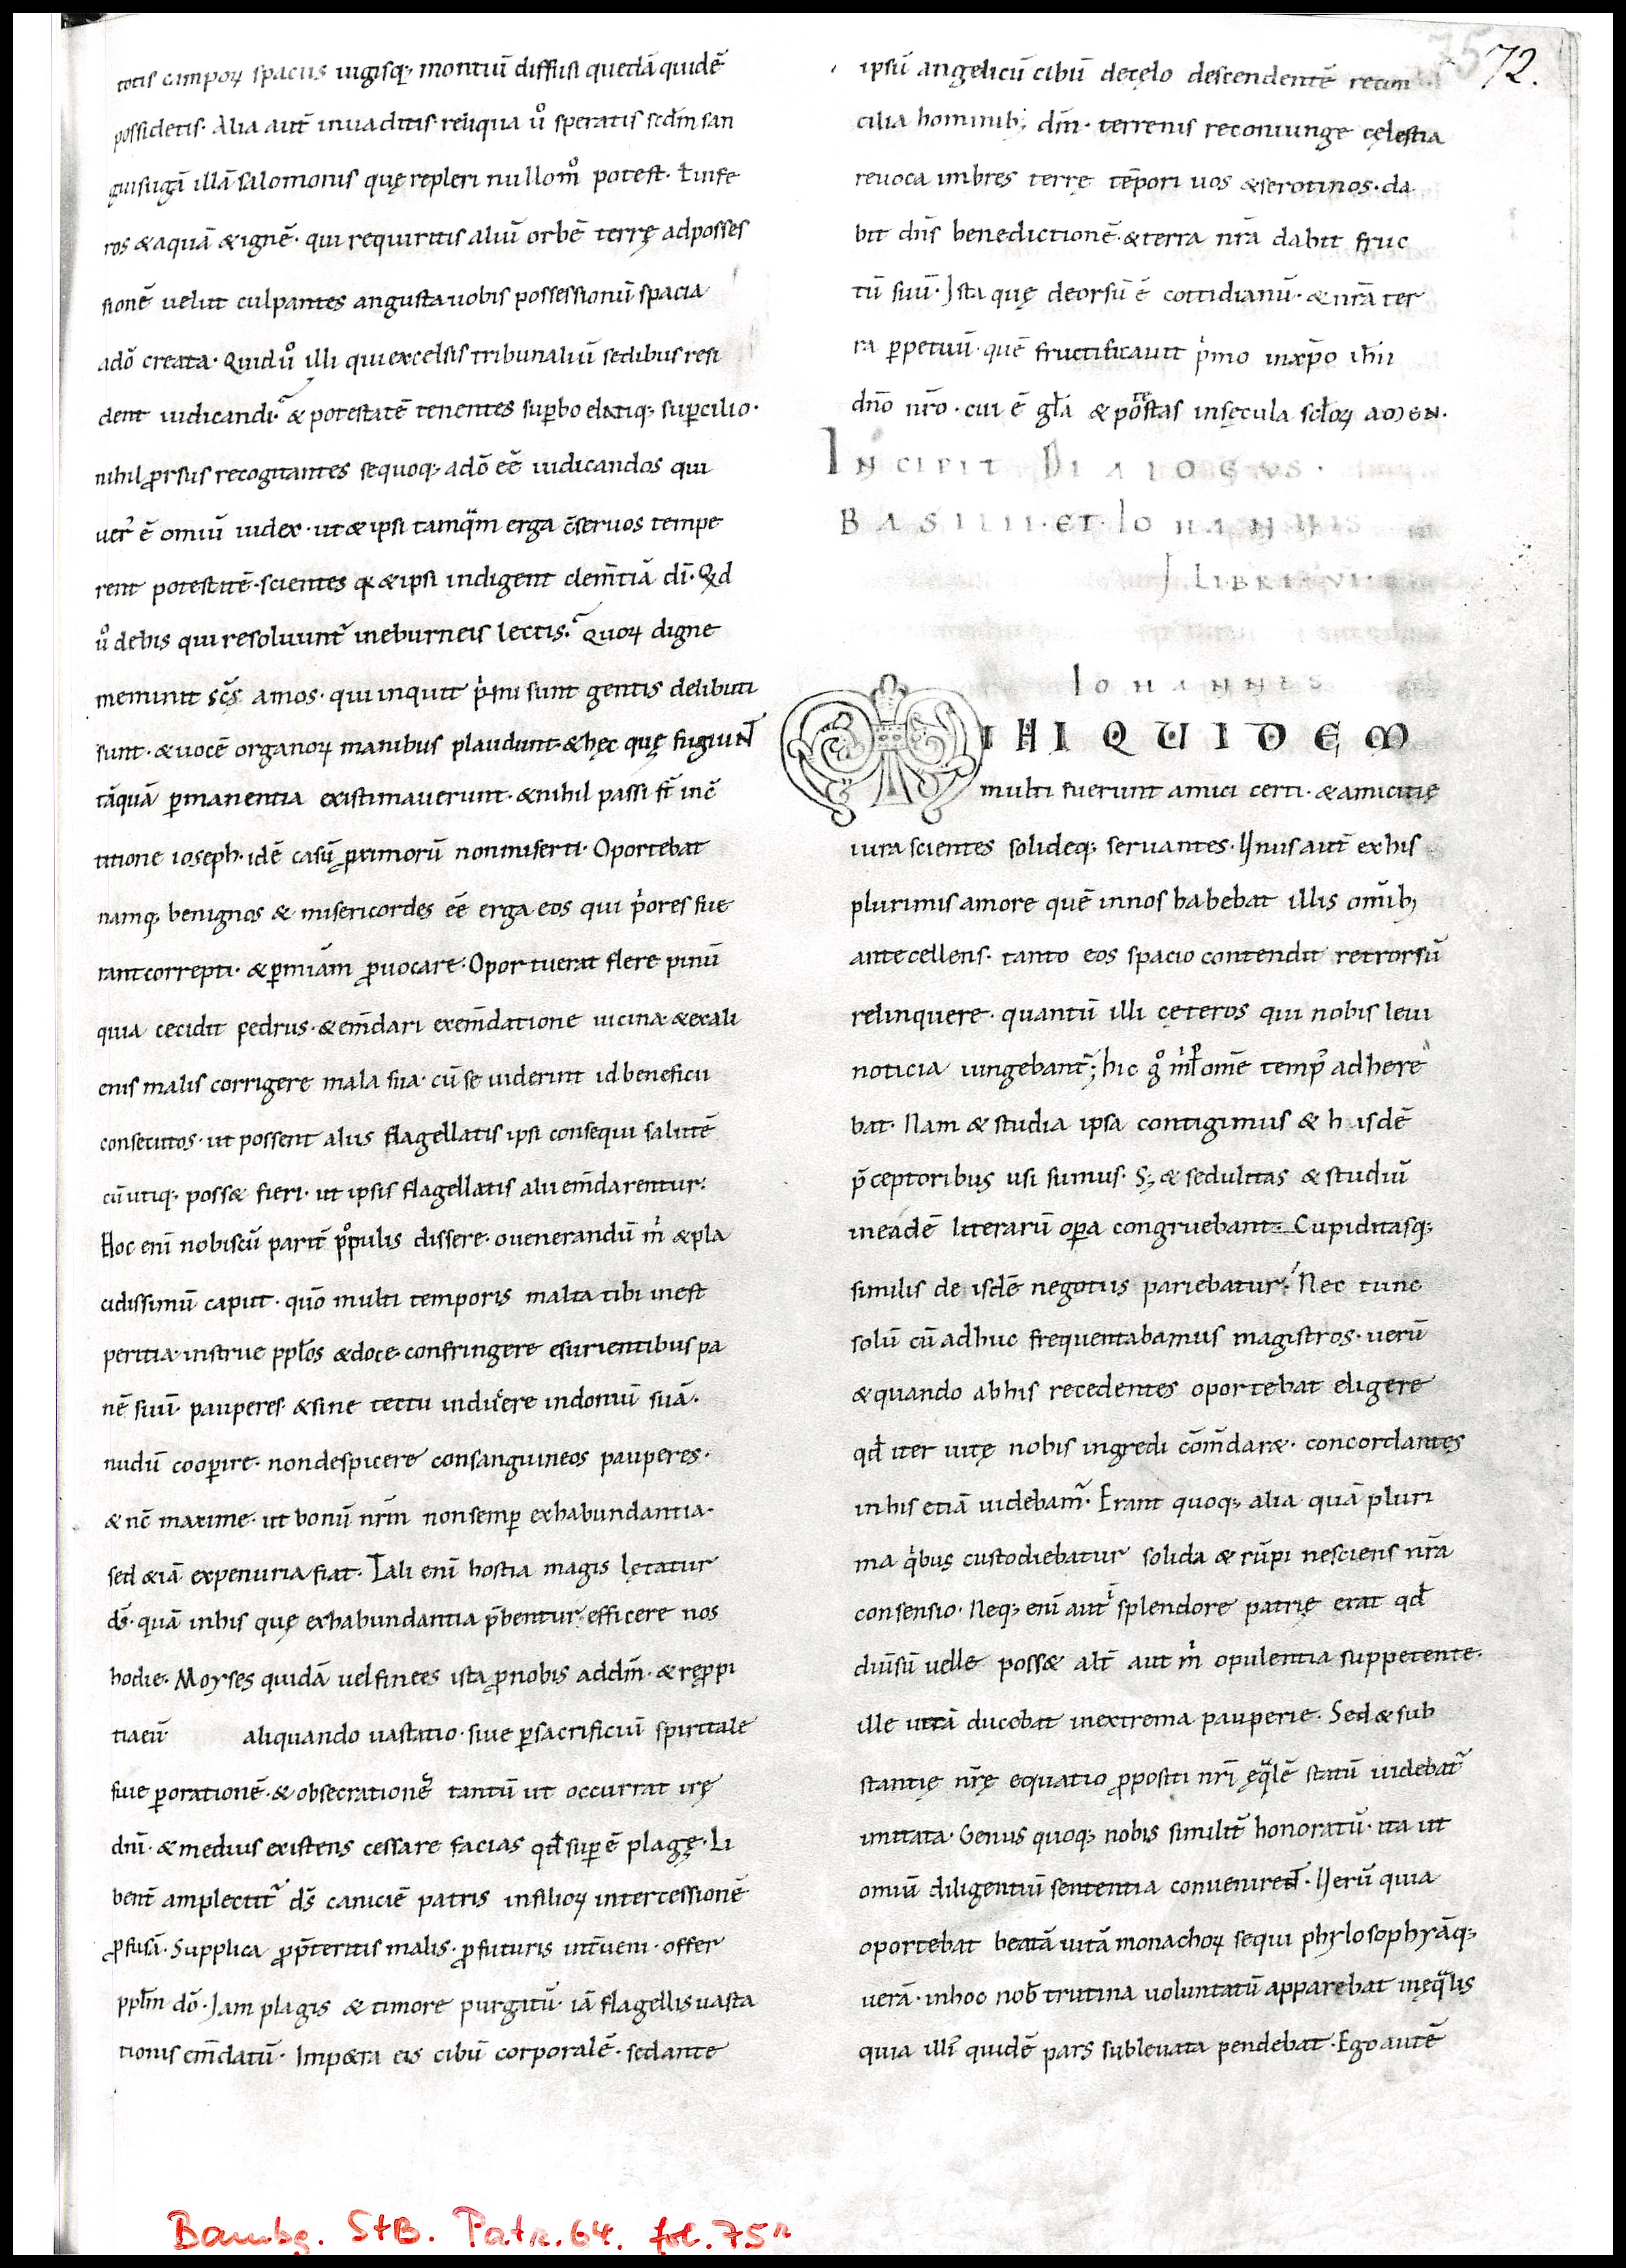 totis campoꝝ spaciis iugisq; montiū diffusi quedā quidē
possidetis· Alia aut̄ inuaditis· reliqua ů speratis sed̄m san
guisugā illā salomonis quę repleri nullom̊ potest· ł infe
ros & aquā & ignē· qui requiritis aliū orbē terrę adposses
sionē uelut culpantes angusta uobis possessionū spacia
adō creata· Quid ů illi qui excelsis tribunaliū sedibus resi
dent iudicandi· & potestatē tenentes supbo elatiq; supcilio·
nihil prsus recogitantes sequoq; adō eē iudicandos qui
uer᾽ ē omiū iudex· ut & ipsi tamq̄m erga c̄seruos tempe
rent potestatē· scientes qd & ipsi indigent clem̄tiā dī· Qd
ů dehis qui resoluunt᾽ ineburneis lectis· Quoꝝ digne
meminit sc̄s amos· qui inquit p̍mi sunt gentis delibuti
sunt· & uocē organoꝝ manibus plaudunt· & hęc quę fugiunt
tāquā pmanentia existimauerunt· & nihil passi st̄ inc̄
titione ioseph· idē casū primorū nonmiserti· Oportebat
namq; benignos & misericordes eē erga eos qui p̍ores fue
rant correpti· & pmiām puocare· Oportuerat flere pinū
quia cecidit pedrus· & em̄dari exem̄datione uicina· & exali
enis malis corrigere mala sua· cū se uiderint id beneficii
consecutos· ut possent aliis flagellatis ipsi consequi salutē
cū utiq; poss& fieri· ut ipsis flagellatis alii em̄darentur·
Hoc enī nobiscū parit̄ p̊pulis dissere· o uenerandū m̍ & pla
cidissimū caput· quō multi temporis malta tibi inest
peritia· instrue ppl̄os & doce· confringere esurientibus pa
nē suū· pauperes· & sine tectu inducere indomū suā·
nudū coopire· non despicere consanguineos pauperes·
& nc̄ maxime· ut bonū nrm̄ nonsemp exhabundantia·
sed &iā expenuria fiat· Tali enī hostia magis lętatur
ds̄· quā inhis quę exhabundantia p̄bentur· efficere nos
hodie· Moyses quidā uel finees ista pnobis addm̄· & rępropi
tia eū aliquando uastatio· siue psacrificiū spiritale
siue porationē· & obsecrationē tantū ut occurrat irę
dnī· & medius existens cessare facias qđ sup ē plagę· Li
bent̄ amplectit᾽ ds̄ caniciē patris infilioꝝ intercessionē
pfusā· Supplica pp̄teritis malis· pfuturis int̄ueni· offer
ppl̄m dō· Iam plagis & timore purgatū· iā flagellis uasta
tionis em̄datū· Imp&ra eis cibū corporalē· sedante
72.
ipsū angelicū cibū decęlo descendentē recon
cilia hominib; dm̄· terrenis reconiunge cęlestia
reuoca imbres terrę tēpori uos & serotinos· da
bit dns̄ benedictionē· & terra nrā dabit fruc
tū suū· Ista quę deorsū ē cottidianū· & nrā ter
ra ppetuū· quē fructificauit p̍mo inxp̄o ihū
dn̄o nr̄o· cui ē gl̄a & potestas insęcula scl̄oꝝ amen·
INCIPIT DIALOGUS·
BASILII· ET· IOHANNIS
LIBRI· VI·
IOHANNES
MIHI QUIDEM
multi fuerunt amici certi· & amicitię
iura scientes solideq; seruantes· Unus aut̄ exhis
plurimis amore quē innos habebat illis omīb;
antecellens· tanto eos spacio contendit retrorsū
relinquere· quantū illi cęteros qui nobis leui
noticia iungebant᾽; hic g̊ m̍ p omē temp᾽ adhere
bat· Nam & studia ipsa contigimus & h isdē
p̄ceptoribus usi sumus· S; & sedulitas & studiū
ineadē literarū opa congruebant· Cupiditasq;
similis de isdē negotiis pariebatur· Nec tunc
solū cū adhuc frequentabamus magistros· uerū
& quando abhis recedentes oportebat eligere
qđ iter uitę nobis ingredi cōm̄dar&· concordantes
inhis etiā uidebam᾽· Erant quoq; alia quā pluri
ma q̍bus custodiebatur solida & rūpi nesciens nrā
consensio· Neq; enī aut ī splendore patrię erat qđ
diuīsū uelle poss& alt̄ aut m̍ opulentia suppetente·
ille uitā ducebat inextrema pauperie· Sed & sub
stantię nrę̄ equatio ppositi nrī ęq̈lē statū uidebat᾽
imitata· Genus quoq; nobis similit̄ honoratū· ita ut
omiū diligentiū sententia conueniret· Uerū quia
oportebat beatā uitā monachoꝝ sequi phylosophyāq;
uerā· inhoc nob̄ trutina uoluntatū apparebat inęq̈lis
quia illi᾽ quidē pars subleuata pendebat· Ego autē
Bambg. StB. Patr. 64. fol. 75r